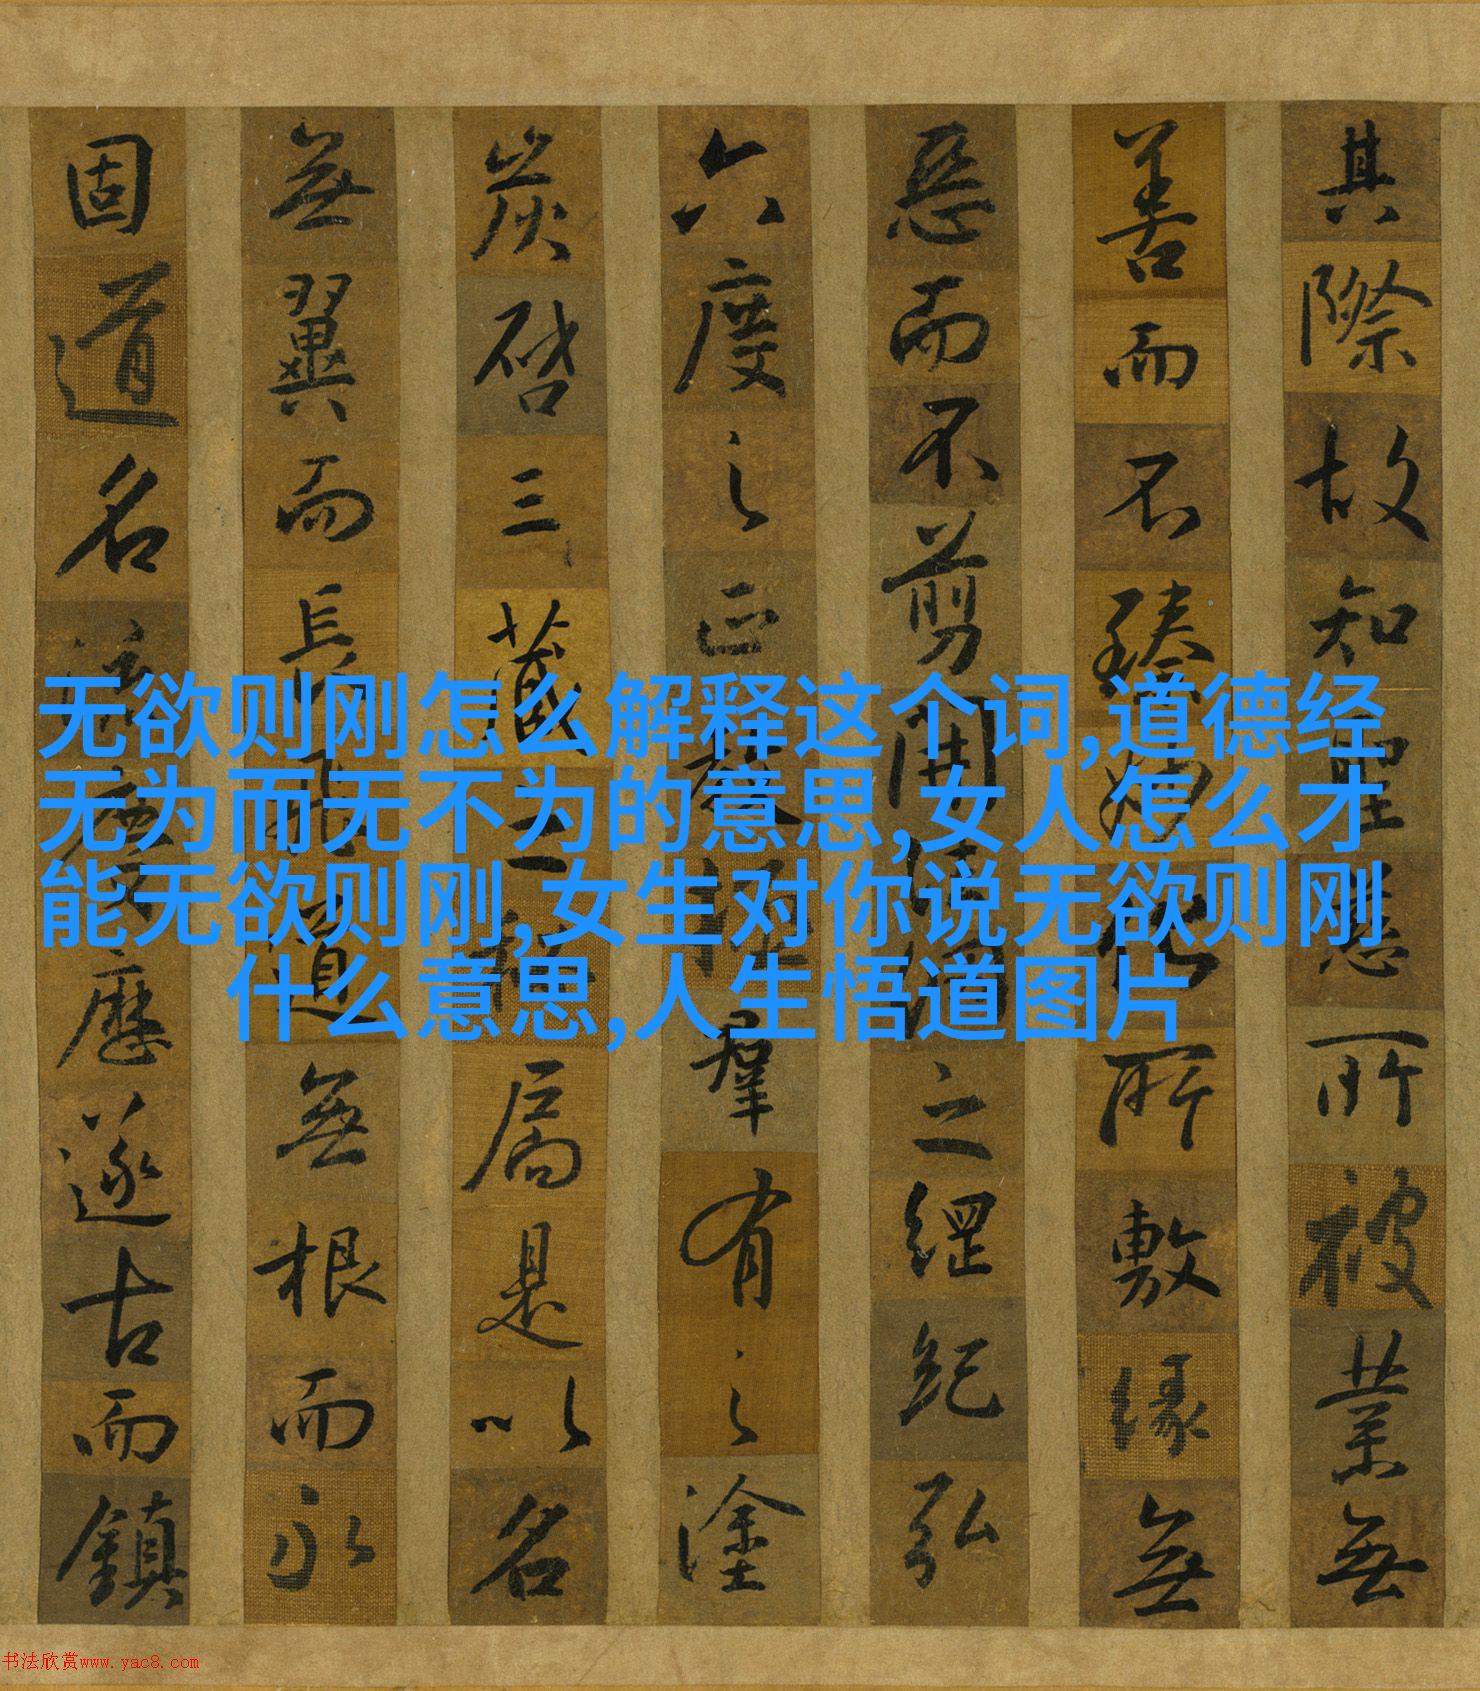 无欲则刚怎么解释这个词,道德经
无为而无不为的意思,女人怎么才
能无欲则刚,女生对你说无欲则刚
什么意思,人生悟道图片
其際故知聖慈所被業無
善而不臻妙化所敷緣無
惡而不剪開法網之綱紀弘
六度之正教拯羣有之塗
炭啓三藏之秘扃是以名
無翼而長飛道無根而永
固道名流慶歷遂古而鎮
书法欣赏www.yac8.com